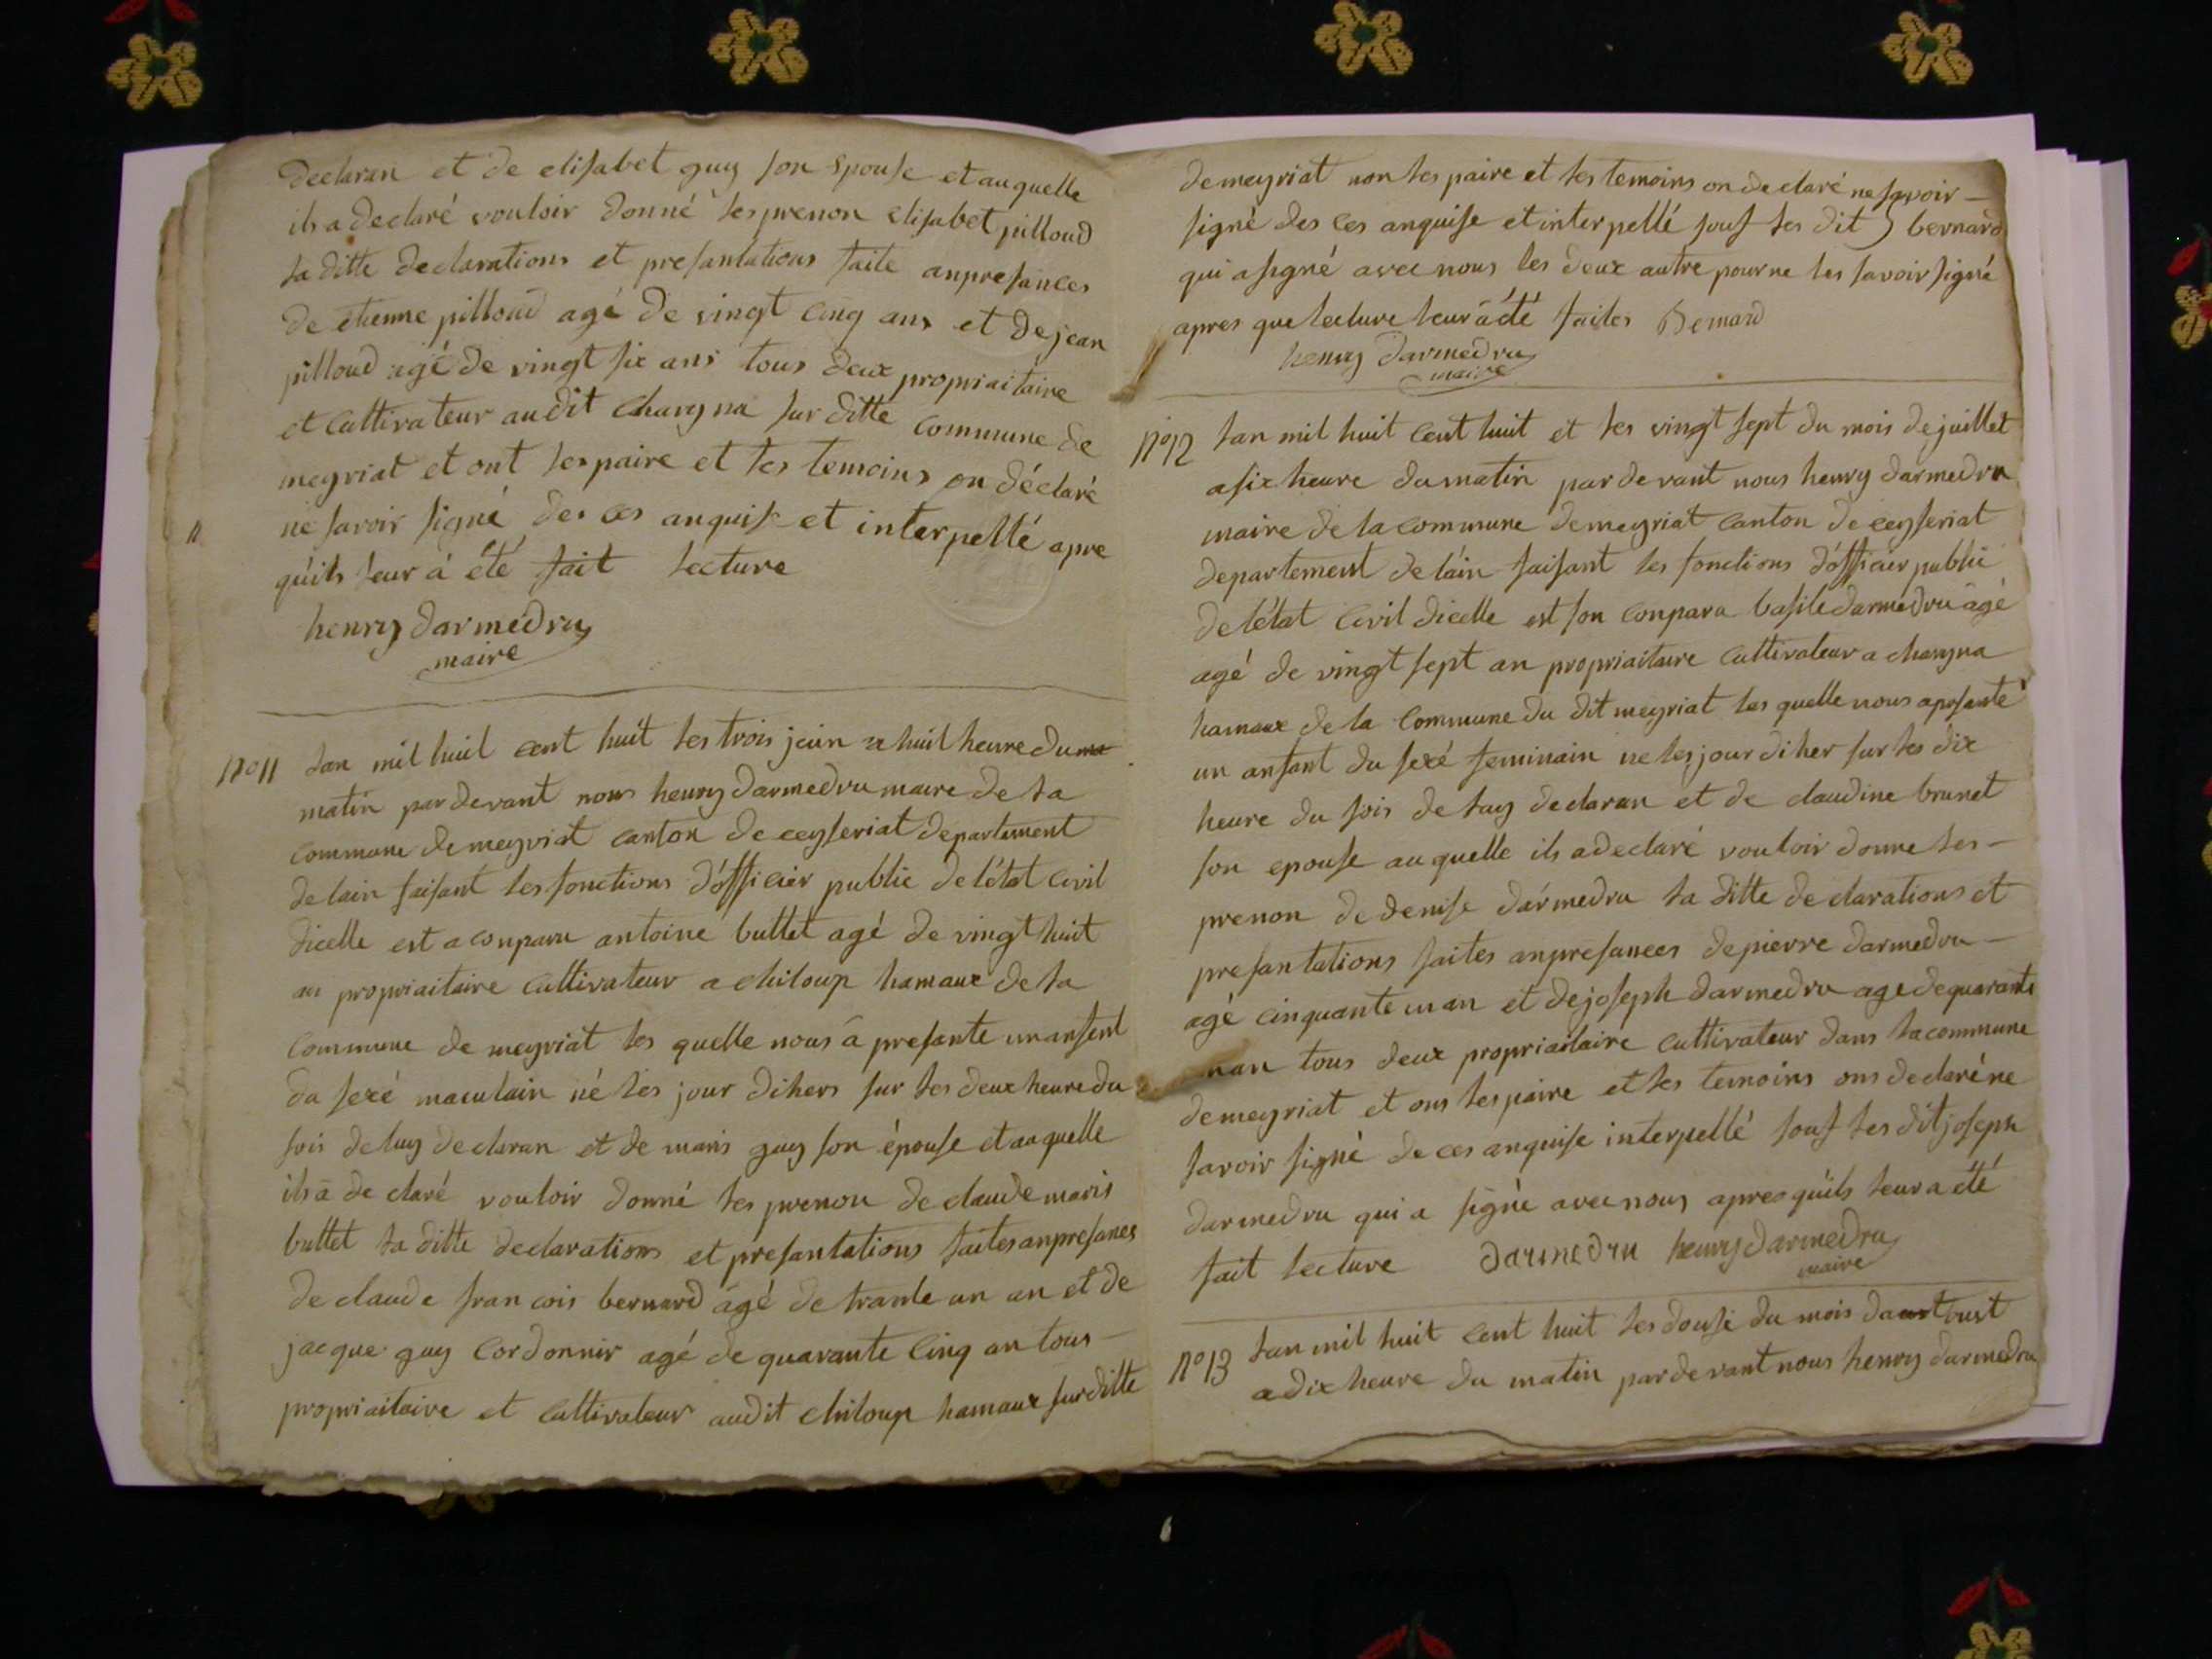 declaran et de elisabet guy son epouse et auquelle
ils a declaré vouloir donné les prenon elisabet pilloud
la ditte declarations et presantations faite anpresances
de etienne pilloud agé de vingt cinq ans et de jean
pilloud agé de vingt six ans tous deux propriaitaire
et cultivateur audit charyna sur ditte commune de
meyriat et ont les paire et les temoins on déclaré
ne savoir signé des ces anquise et interpellé apre
quils leur à été fait lecture
henry darmedru
maire
n° 11 lan mil huit cent huit les trois juin a huit heure du ma
matin par devant nous henry darmedru maire de la
commune de meyriat canton de ceyseriat departement
de lain faisant les fonctions d'officier public de l'état civil
dicelle est a conparu antoine buttet agé de vingt huit
an propriaitaire cultivateur a chiloup hamaux de la
commune de meyriat les quelle nous à presante un ansent
du sexé maculain né les jour dihers sur les deux heure du
soir de luy declaran et de maris guy son épouse et auquelle
ils à declaré vouloir donné les prenon de claude maris
buttet la ditte declarations et presantations faites anpresances
de claude francois bernard àgé de trante un an et de
jacque guy cordonnir agé de quarante cinq an tous -
propriaitaire et cultivateur audit chiloup hamaux sur ditte
de meyriat non les paire et les temoins on declaré ne savoir -
signé des ces anquise et interpellé sous les dit bernard
qui a signé avec nous les deux autre pour ne les savoir signé
apres que lecture leur à été faites Bernard
henry darmedru
maire
n° 12 lan mil huit cent huit et les vingt sept du mois de juillet
a six heure du matin par devant nous henry darmedru
maire de la commune de meyriat canton de ceyseriat
departement de l'ain faisant les fonctions d'officier public
de l'état civil dicelle est son conpara basile darmedru àgé
agé de vingt sept an propriaitaire cultivateur a charyna
hamaux de la commune du dit meyriat les quelle nous apresanté
un ansant du sexé feminain ne les jour diher sur les dix
heure du soir de luy declaran et de claudine brunet
son epouse auquelle ils a declaré vouloir donne les -
prenon de denise dármedru la ditte declarations et
presantations faites anpresances de pierre darmedru -
agé cinquante un an et de joseph darmedru age de quarante
nan tous deux propriaitaire cultivateur dans la commune
de meyriat et ons les paire et les temoins ons declaré ne
savoir signé de ces anquise interpellé sous les dit joseph
darmedru qui a signé avec nous apres quils leur a été
fait lecture darmedru henry darmedru
maire
n° 13 lan mil huit cent huit les douse du mois daust oust
a dix heure du matin par devant nous henry darmedru